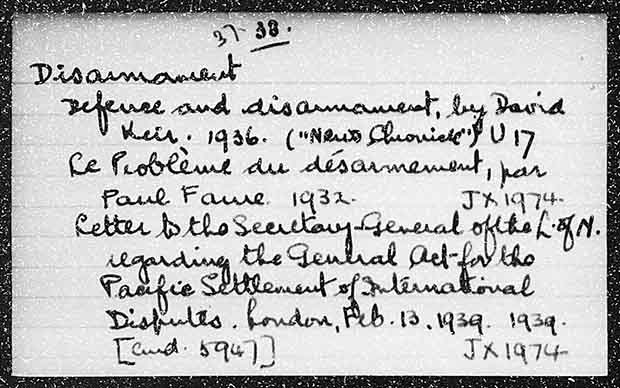 37 38.
Disarmament
Defence and disarmament, by David
Keir. 1936. ("News Chronicle") U 17
Le Problème du désarmement, par
Paul Faure. 1932. JX1974.
Letter to the Secretary-General of the L. of N.
regarding the General Act for the
Pacific Settlement of International
Disputes. London, Feb. 13. 1939. 1939.
[Cmd. 5947] JX1974